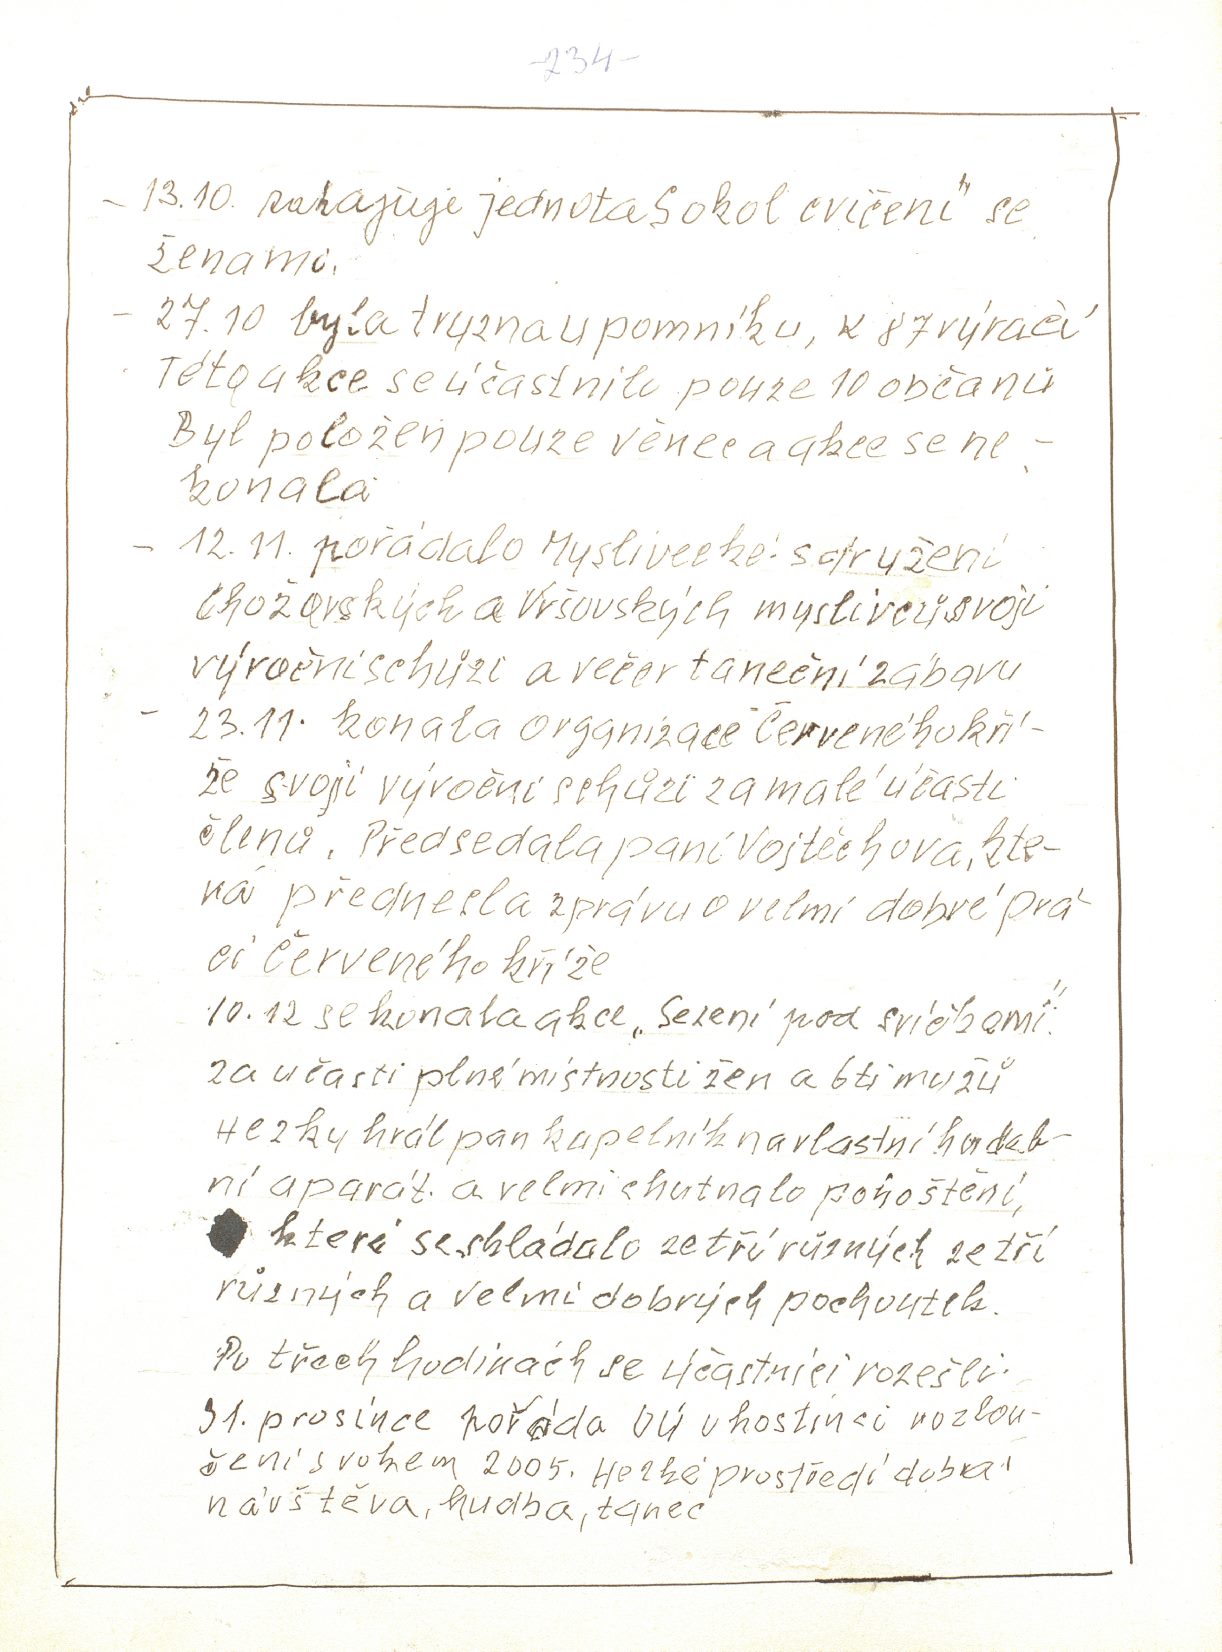 -234-
- 13.10. zahajuje jednota Sokol cvičení" se
ženami.
- 27.10 byla tryzna u pomníku, k 87 výračí
Této akce se účastnilo pouze 10 občanů
Byl položen pouze věnec a akce se ne-
konala
- 12.11. pořádalo Myslivecké sdružení
Chožovských a Vršovských myslivců svoji
výroční schůzi a večer taneční zábavu
- 23.11. konala organizace Červeného kří-
že svoji výroční schůzi za malé účasti
členů. Předsedala paní Vojtěchová, kte-
rá přednesla zprávu o velmi dobré prá-
ci Červeného kříže
10.12 se konala akce „Sezení pod svíčkami"
za učasti plné místnosti žen a 6ti mužů
Hezky hrál pan kapelník na vlastní hudeb-
ní aparát. a velmi chutnalo pohoštění,
které se skládalo ze tří různých ze tří
různých a velmi dobrých pochoutek.
Po třech hodinách se účastníci rozešli.
31. prosince pořádá OÚ v hostinci rozlou-
čení s rokem 2005. Hezké prostředí dobrá
návštěva, hudba, tanec